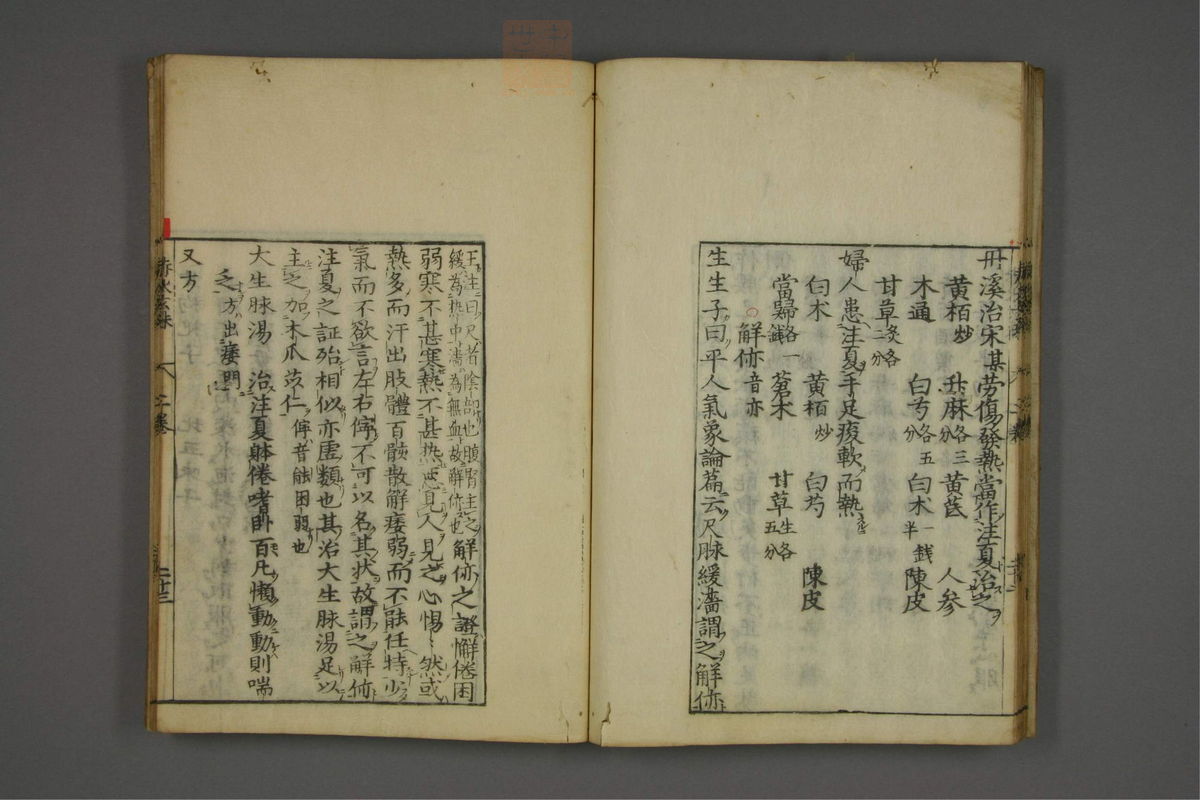 丹溪治宋某勞傷發熱當作注夏治之
黄栢炒 升麻各三分 黄茋 人参
木通 白芍各五分 白术一錢半 陳皮
甘草炙各二分
婦人患注夏手足痠軟而熱
白木 黄栢炒 白芍 陳皮
當歸各一錢 蒼木 甘草生各五分
○解㑊音亦
生生子曰平人氣象論篇云尺脉緩濇謂之解㑊
王注曰尺者陰部也腹腎主之緩為热中濇為無血故解㑊也解㑊之證懈倦困
弱寒不甚寒熱不甚热恶見人見之心惕〻然或
熱多而汗出肢體百骸散解痿弱而不能任持少
氣而不欲言左右侼不可以名其状故謂之解㑊
注夏之証殆相似亦虚類也其治大生脉湯足以
主之加木瓜苡仁 侼音 困弱也
大生脉湯 治注夏躰倦嗜卧百凡懶動動則喘
乏方出痿門
又方
赤水玄珠 二巻 二十三